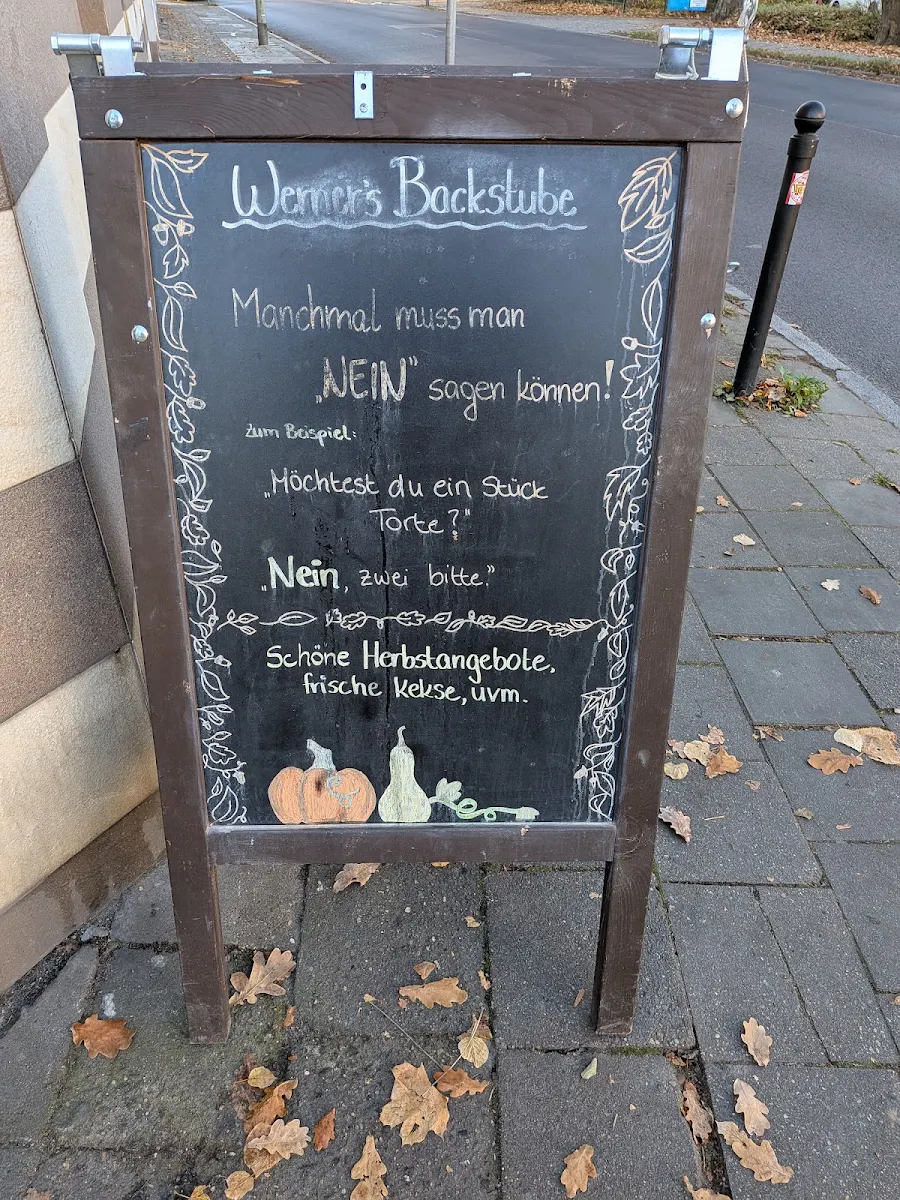 Werner's Backstube
Manchmal muss man
„NEIN" sagen können!
zum Beispiel:
„Möchtest du ein Stück
Torte?"
„Nein, zwei bitte."
Schöne Herbstangebote,
frische Kekse, uvm.